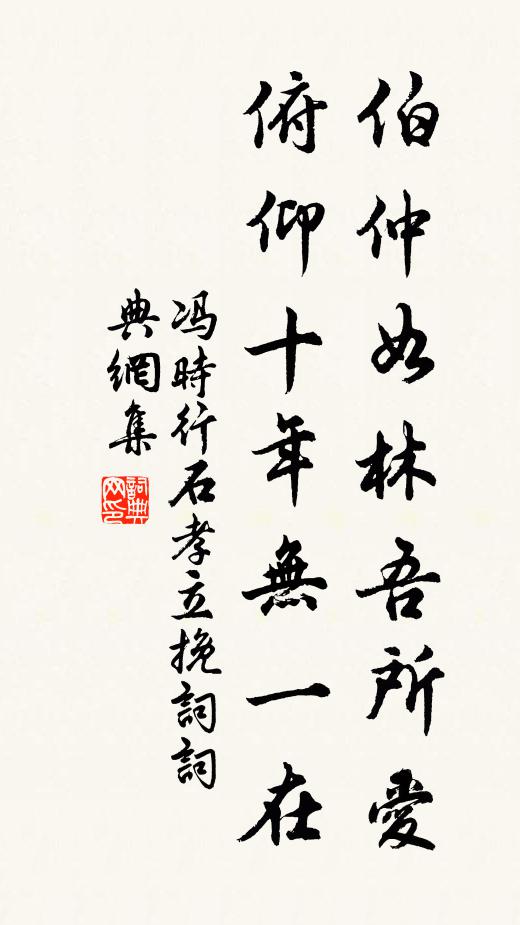 伯仲如林吾所愛
俯仰十年無一在
馮時行石孝立挽詞詞
典網集
詞典网印